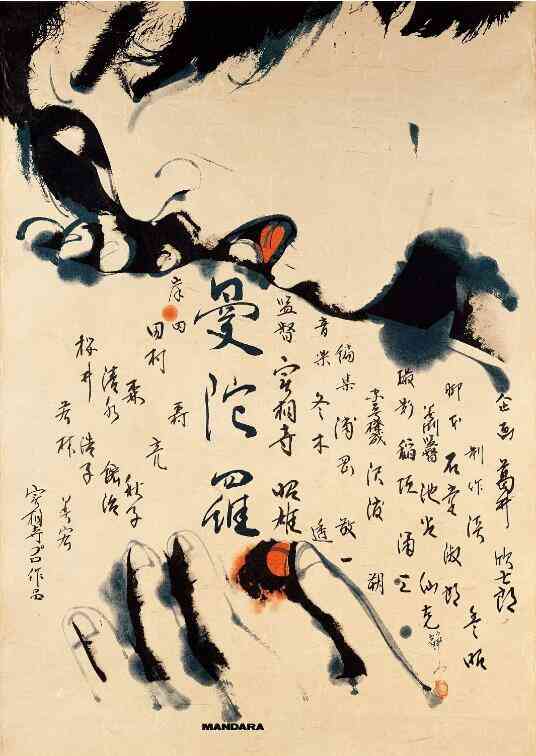 企画 葛井 欣士郎
制作 淡 豊昭
脚本 石堂 淑朗
美術監督 池谷 仙克
撮影 稲垣 涌三
編集 浦岡 敬一
音楽 冬木 透
監督 実相寺 昭雄
曼陀羅
岸田 森
田村 亮
森 秋子
清水 紘治
桜井 浩子
若林 美宏
実相寺プロ作品
MANDARA